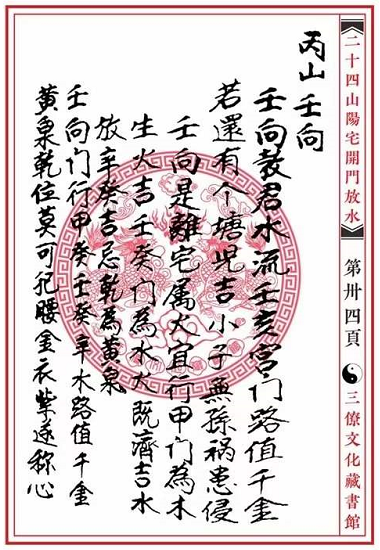 《二十四山陽宅開門放水》 第卅四頁 三僚文化藏書館
丙山壬向
壬向教君水流壬亥宮门路值千金
若還有个塘児吉小子無孫祸患侵
壬向是離宅属火宜行甲门為木
生火吉壬癸门為水火既濟吉水
放辛癸吉忌乾為黄泉
壬向门行甲癸壬癸辛水路值千金
黄泉乾位莫可犯腰金衣紫遂称心